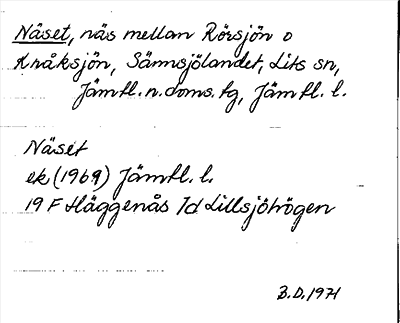 Näset, näs mellan Rörsjön o
Kråksjön, Sännsjölandet, Lits sn,
Jämtl. n. doms. tg, Jämtl. l.
Näset
ek (1969) Jämtl. l.
19 F Häggenås 1d Lillsjöhögen
B.D. 1971